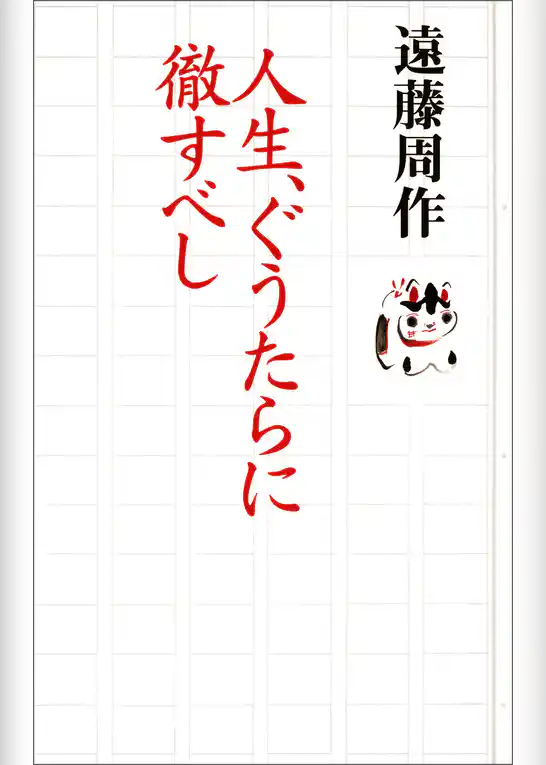 遠藤周作
人生、ぐうたらに
徹すべし